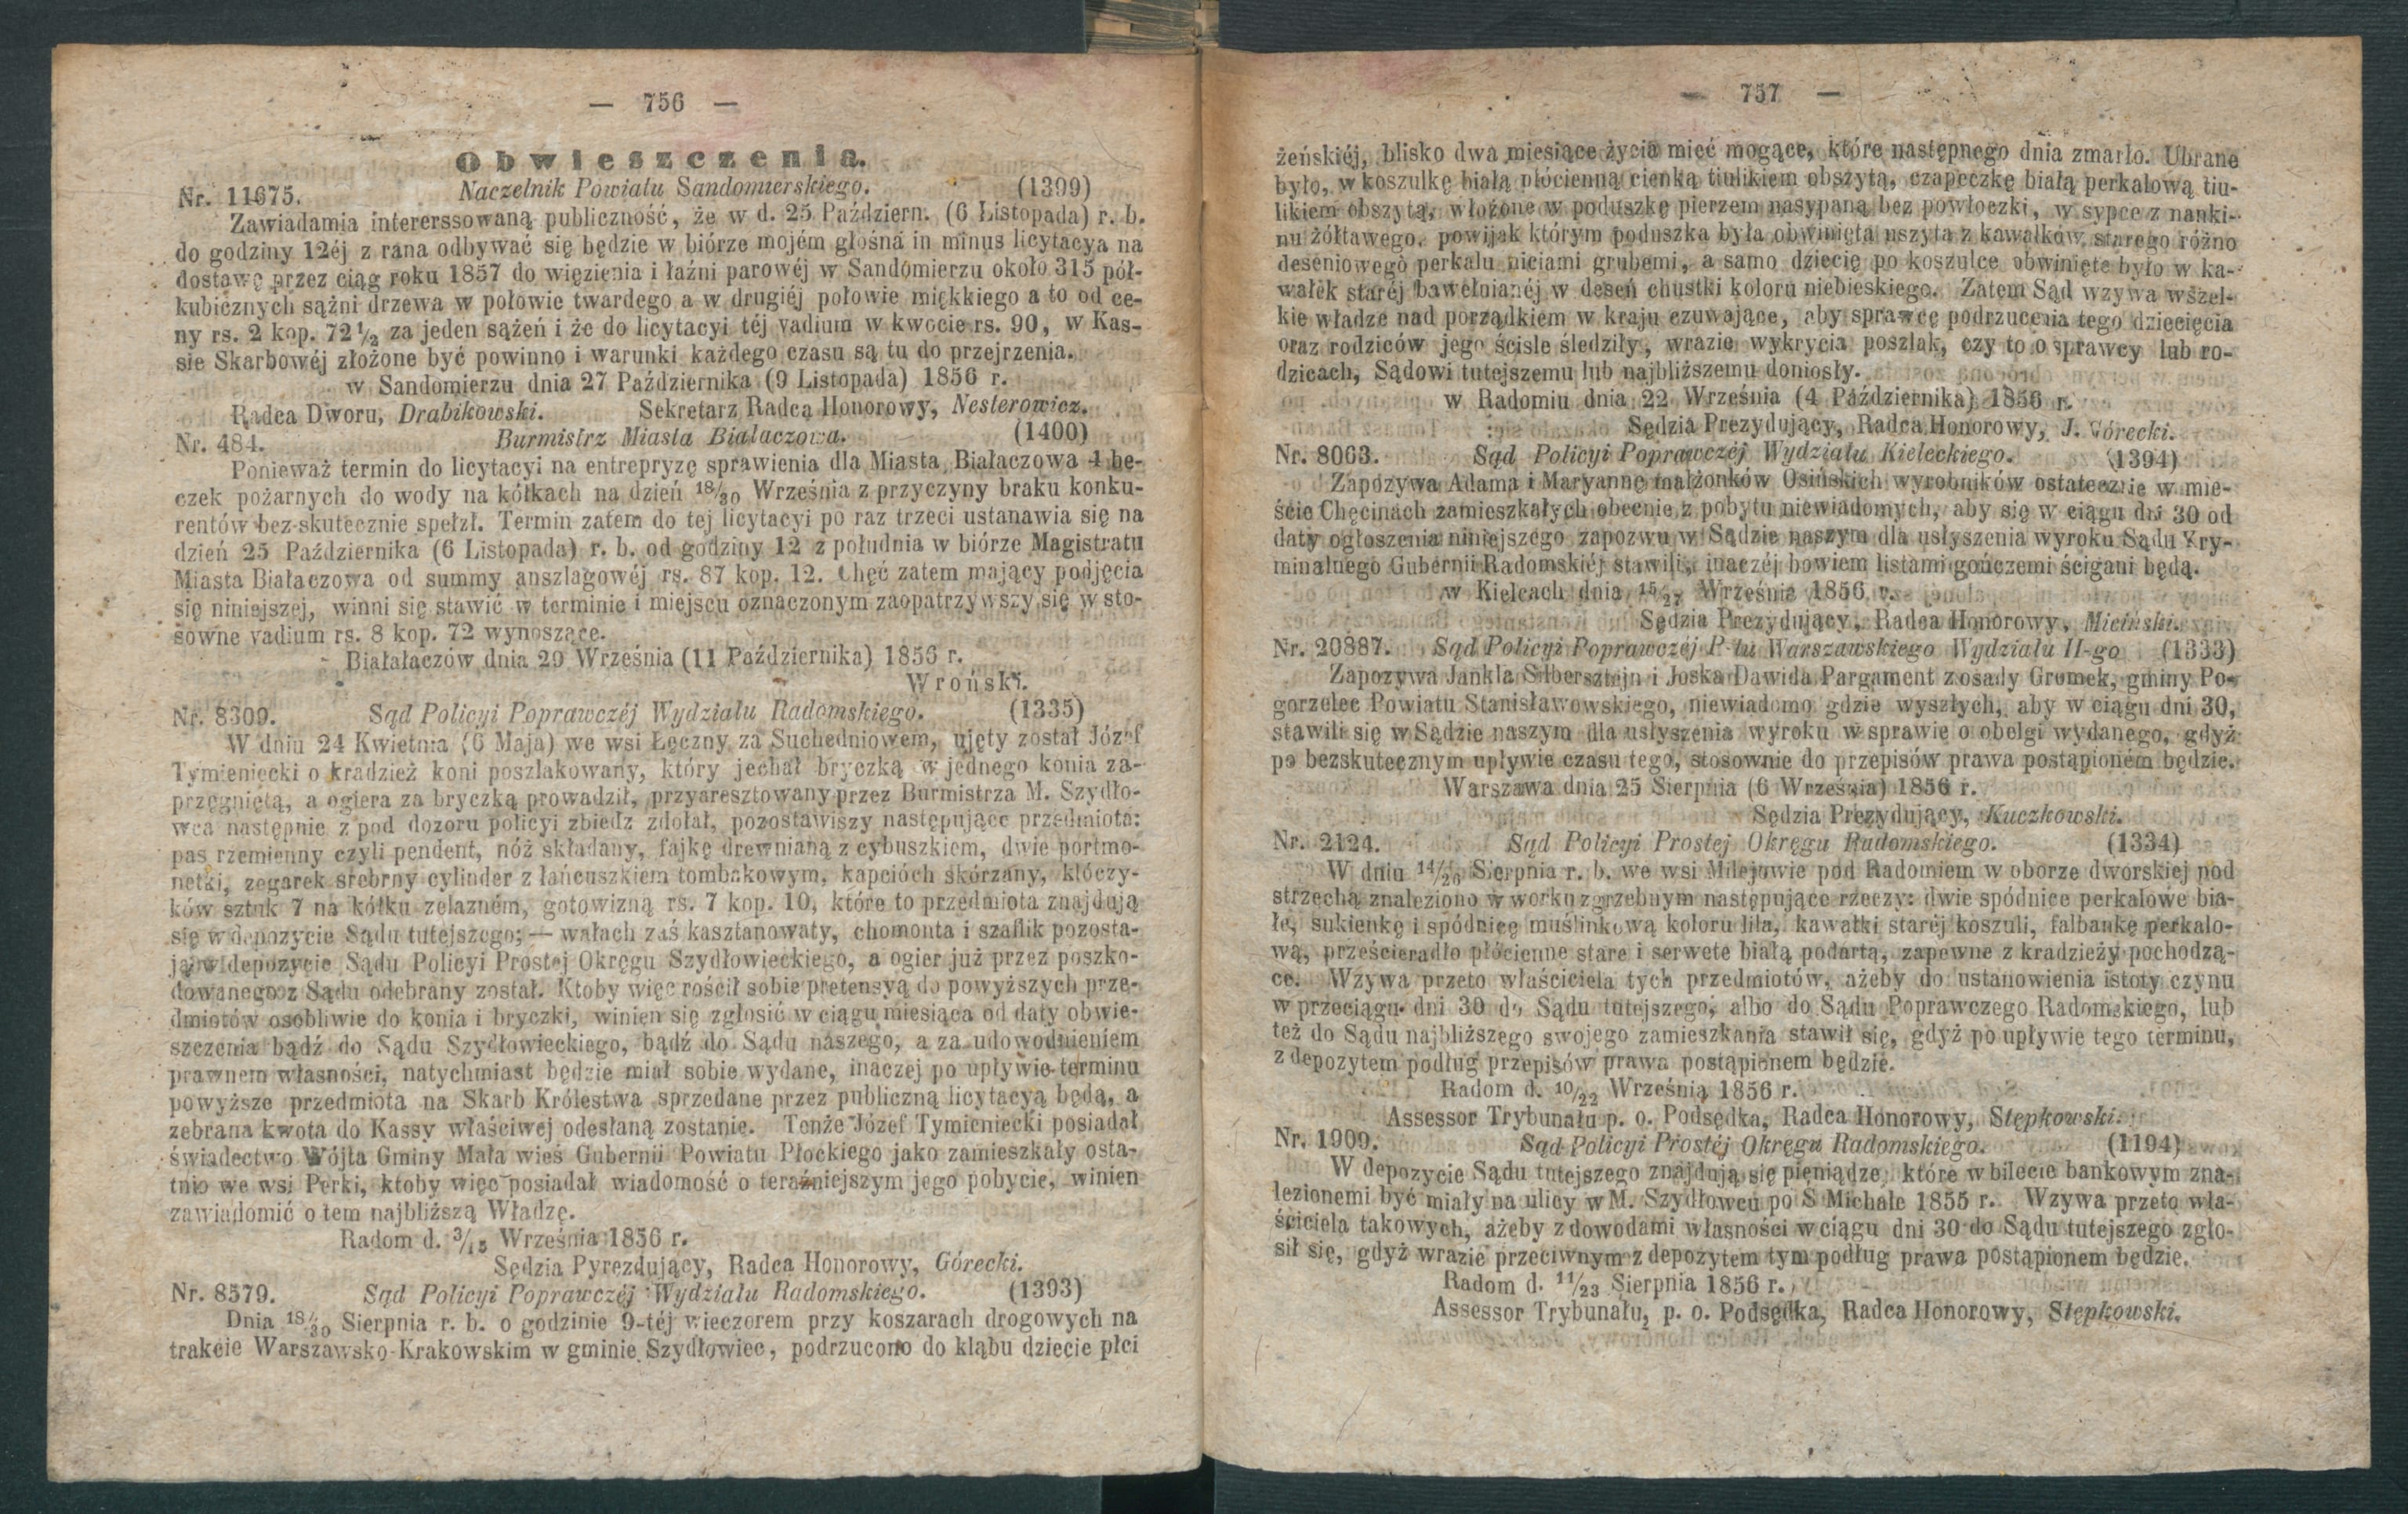 — 756 —
Obwieszczenia.
Nr. 11675. Naczelnik Powiatu Sandomierskiego. (1399)
Zawiadamia intererssowaną publiczność, że w d. 25 Październ. (6 Listopada) r. b.
do godziny 12éj z rana odbywać się będzie w biórze mojém głośna in minus licytacya na
dostawę przez ciąg roku 1857 do więzienia i łaźni parowéj w Sandomierzu około 315 pół-
kubicznych sążni drzewa w połowie twardego a w drugiéj połowie miękkiego a to od ce-
ny rs. 2 kop. 72½ za jeden sążeń i że do licytacyi téj vadium w kwocie rs. 90, w Kas-
sie Skarbowéj złożone być powinno i warunki każdego czasu są tu do przejrzenia.
w Sandomierzu dnia 27 Października (9 Listopada) 1856 r.
Radca Dworu, Drabikowski. Sekretarz Radca Honorowy, Nesterowicz.
Nr. 484. Burmistrz Miasta Białaczowa. (1400)
Ponieważ termin do licytacyi na entrepryzę sprawienia dla Miasta Białaczowa 4 be-
czek pożarnych do wody na kółkach na dzień 18/30 Września z przyczyny braku konku-
rentów bez-skutecznie spełzł. Termin zatem do tej licytacyi po raz trzeci ustanawia się na
dzień 25 Października (6 Listopada) r. b. od godziny 12 z południa w biórze Magistratu
Miasta Białaczowa od summy anszlagowéj rs. 87 kop. 12. Chęć zatem mający podjęcia
się niniejszej, winni się stawić w terminie i miejscu oznaczonym zaopatrzywszy się w sto-
sowne vadium rs. 8 kop. 72 wynoszące.
Białałaczów dnia 29 Września (11 Października) 1856 r.
Wroński.
Nr. 8309. Sąd Policyi Poprawczéj Wydziału Radomskiego. (1335)
W dniu 24 Kwietnia (6 Maja) we wsi Łęczny za Suchedniowem, ujęty został Józef
Tymieniecki o kradzież koni poszlakowany, który jechał bryczką w jednego konia za-
przęgniętą, a ogiera za bryczką prowadził, przyaresztowany przez Burmistrza M. Szydło-
wca następnie z pod dozoru policyi zbiedz zdołał, pozostawiszy następujące przedmiota:
pas rzemienny czyli pendent, nóż składany, fajkę drewnianą z cybuszkiem, dwie portmo-
netki, zegarek srebrny cylinder z łańcuszkiem tombakowym, kapcióch skórzany, klóczy-
ków sztuk 7 na kółku zelazném, gotowizną rs. 7 kop. 10, które to przedmiota znajdują
się w depozycie Sądu tutejszego; — wałach zaś kasztanowaty, chomonta i szaflik pozosta-
ją w depozycie Sądu Policyi Prostej Okręgu Szydłowieckiego, a ogier już przez poszko-
dowanego z Sądu odebrany został. Ktoby więc rościł sobie pretensyą do powyższych prze-
dmiotów osobliwie do konia i bryczki, winien się zgłosić w ciągu miesiąca od daty obwie-
szczenia bądź do Sądu Szydłowieckiego, bądź do Sądu naszego, a za udowodnieniem
prawnem własności, natychmiast będzie miał sobie wydane, inaczej po upływie terminu
powyższe przedmiota na Skarb Królestwa sprzedane przez publiczną licytacyą będą, a
zebrana kwota do Kassy właściwej odesłaną zostanie. Tenże Józef Tymieniecki posiadał
świadectwo Wójta Gminy Mała wieś Gubernii Powiatu Płockiego jako zamieszkały osta-
tnio we wsi Perki, ktoby więc posiadał wiadomość o teraźniejszym jego pobycie, winien
zawiadomić o tem najbliższą Władzę.
Radom d. 3/15 Września 1856 r.
Sędzia Pyrezdujący, Radca Honorowy, Górecki.
Nr. 8579. Sąd Policyi Poprawczéj Wydziału Radomskiego. (1393)
Dnia 18/30 Sierpnia r. b. o godzinie 9-téj wieczorem przy koszarach drogowych na
trakcie Warszawsko-Krakowskim w gminie Szydłowiec, podrzucono do kląbu dziecie płci
— 757 —
żeńskiéj, blisko dwa miesiące życia mieć mogące, które następnego dnia zmarło. Ubrane
było, w koszulkę białą płócienną cienką tiulikiem obszytą, czapeczkę białą perkalową tiu-
likiem obszytą, włożone w poduszkę pierzem nasypaną bez powłoczki, w sypce z nanki-
nu żółtawego, powijak którym poduszka była obwinięta uszyta z kawałków starego różno
deseniowego perkalu niciami grubemi, a samo dziecię po koszulce obwinięte było w ka-
wałek staréj bawełnianéj w deseń chustki koloru niebieskiego. Zatem Sąd wzywa wszel-
kie władze nad porządkiem w kraju czuwające, aby sprawcę podrzucenia tego dziecięcia
oraz rodziców jego ścisle śledziły, wrazie wykrycia poszlak, czy to o sprawcy lub ro-
dzicach, Sądowi tutejszemu lub najbliższemu doniosły.
w Radomiu dnia 22 Września (4 Października) 1856 r.
Sędzia Prezydujący, Radca Honorowy, J. Górecki.
Nr. 8063. Sąd Policyi Poprawczéj Wydziału Kieleckiego. (1394)
Zapozywa Adama i Maryannę małżonków Osińskich wyrobników ostatecznie w mie-
ście Chęcinach zamieszkałych obecnie z pobytu niewiadomych, aby się w ciągu dni 30 od
daty ogłoszenia niniejszego zapozwu w Sądzie naszym dla usłyszenia wyroku Sądu Kry-
minalnego Gubernii Radomskiéj stawili, inaczéj bowiem listami gończemi ścigani będą.
w Kielcach dnia 15/27 Września 1856 r.
Sędzia Prezydujący, Radca Honorowy, Miciński.
Nr. 20887. Sąd Policyi Poprawczéj P-tu Warszawskiego Wydziału II-go (1333)
Zapozywa Jankla Silbersztejn i Joska Dawida Pargament z osady Gromek, gminy Po-
gorzelec Powiatu Stanisławowskiego, niewiadomo gdzie wyszłych, aby w ciągu dni 30,
stawili się w Sądzie naszym dla usłyszenia wyroku w sprawie o obelgi wydanego, gdyż
po bezskutecznym upływie czasu tego, stosownie do przepisów prawa postąpioném będzie.
Warszawa dnia 25 Sierpnia (6 Września) 1856 r.
Sędzia Prezydujący, Kuczkowski.
Nr. 2124. Sąd Policyi Prostej Okręgu Radomskiego. (1334)
W dniu 14/26 Sierpnia r. b. we wsi Milejowie pod Radomiem w oborze dworskiej pod
strzechą znaleziono w worku zgrzebnym następujące rzeczy: dwie spódnice perkalowe bia-
łe, sukienkę i spódnicę muślinkową koloru lila, kawałki staréj koszuli, falbankę perkalo-
wą, prześcieradło płócienne stare i serwete białą podartą, zapewne z kradzieży pochodzą-
ce. Wzywa przeto właściciela tych przedmiotów, ażeby do ustanowienia istoty czynu
w przeciągu dni 30 do Sądu tutejszego, albo do Sądu Poprawczego Radomskiego, lub
też do Sądu najbliższego swojego zamieszkania stawił się, gdyż po upływie tego terminu,
z depozytem podług przepisów prawa postąpionem będzie.
Radom d. 10/22 Września 1856 r.
Assessor Trybunału p. o. Podsędka, Radca Honorowy, Stępkowski.
Nr. 1909. Sąd Policyi Prostéj Okręgu Radomskiego. (1194)
W depozycie Sądu tutejszego znajdują się pieniądze, które w bilecie bankowym zna-
lezionemi być miały na ulicy w M. Szydłowcu po S Michale 1855 r. Wzywa przeto wła-
ściciela takowych, ażeby z dowodami własności w ciągu dni 30 do Sądu tutejszego zgło-
sił się, gdyż wrazie przeciwnym z depozytem tym podług prawa postąpionem będzie.
Radom d. 11/23 Sierpnia 1856 r.
Assessor Trybunału, p. o. Podsędka, Radca Honorowy, Stępkowski.